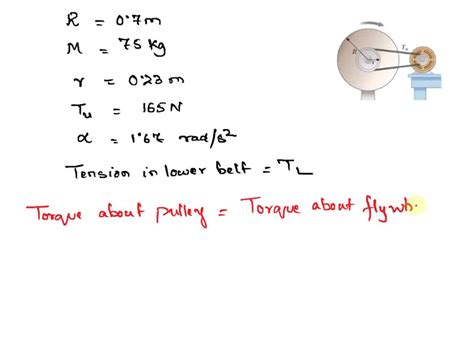 R = 0.7m
M = 75 kg
r = 0.23 m
Tu = 165 N
α = 1.67 rad/s²
Tension in lower belt = TL
Torque about pulley = Torque about flywh.
R
Tu